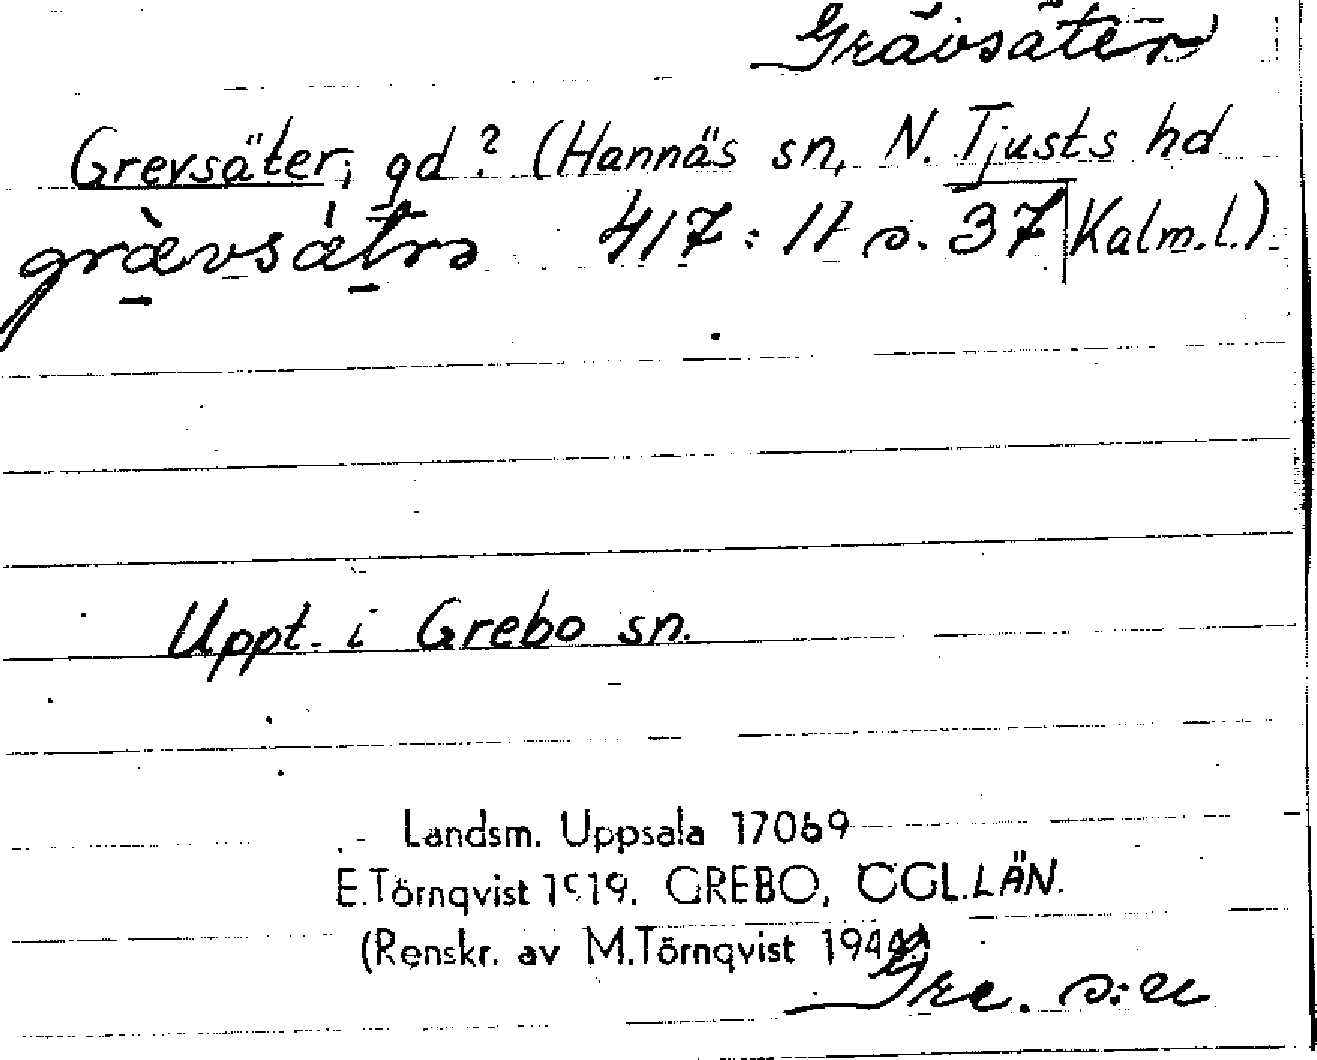 Grävsäter
Grevsäter, gd? (Hannäs sn, N. Tjusts hd
grævsætrə 417: II s. 37 Kalm.l.).
Uppt. i Grebo sn.
Landsm. Uppsala 17069
E.Törnqvist 1919. GREBO, ÖGL.LÄN.
(Renskr. av M.Törnqvist 1944)